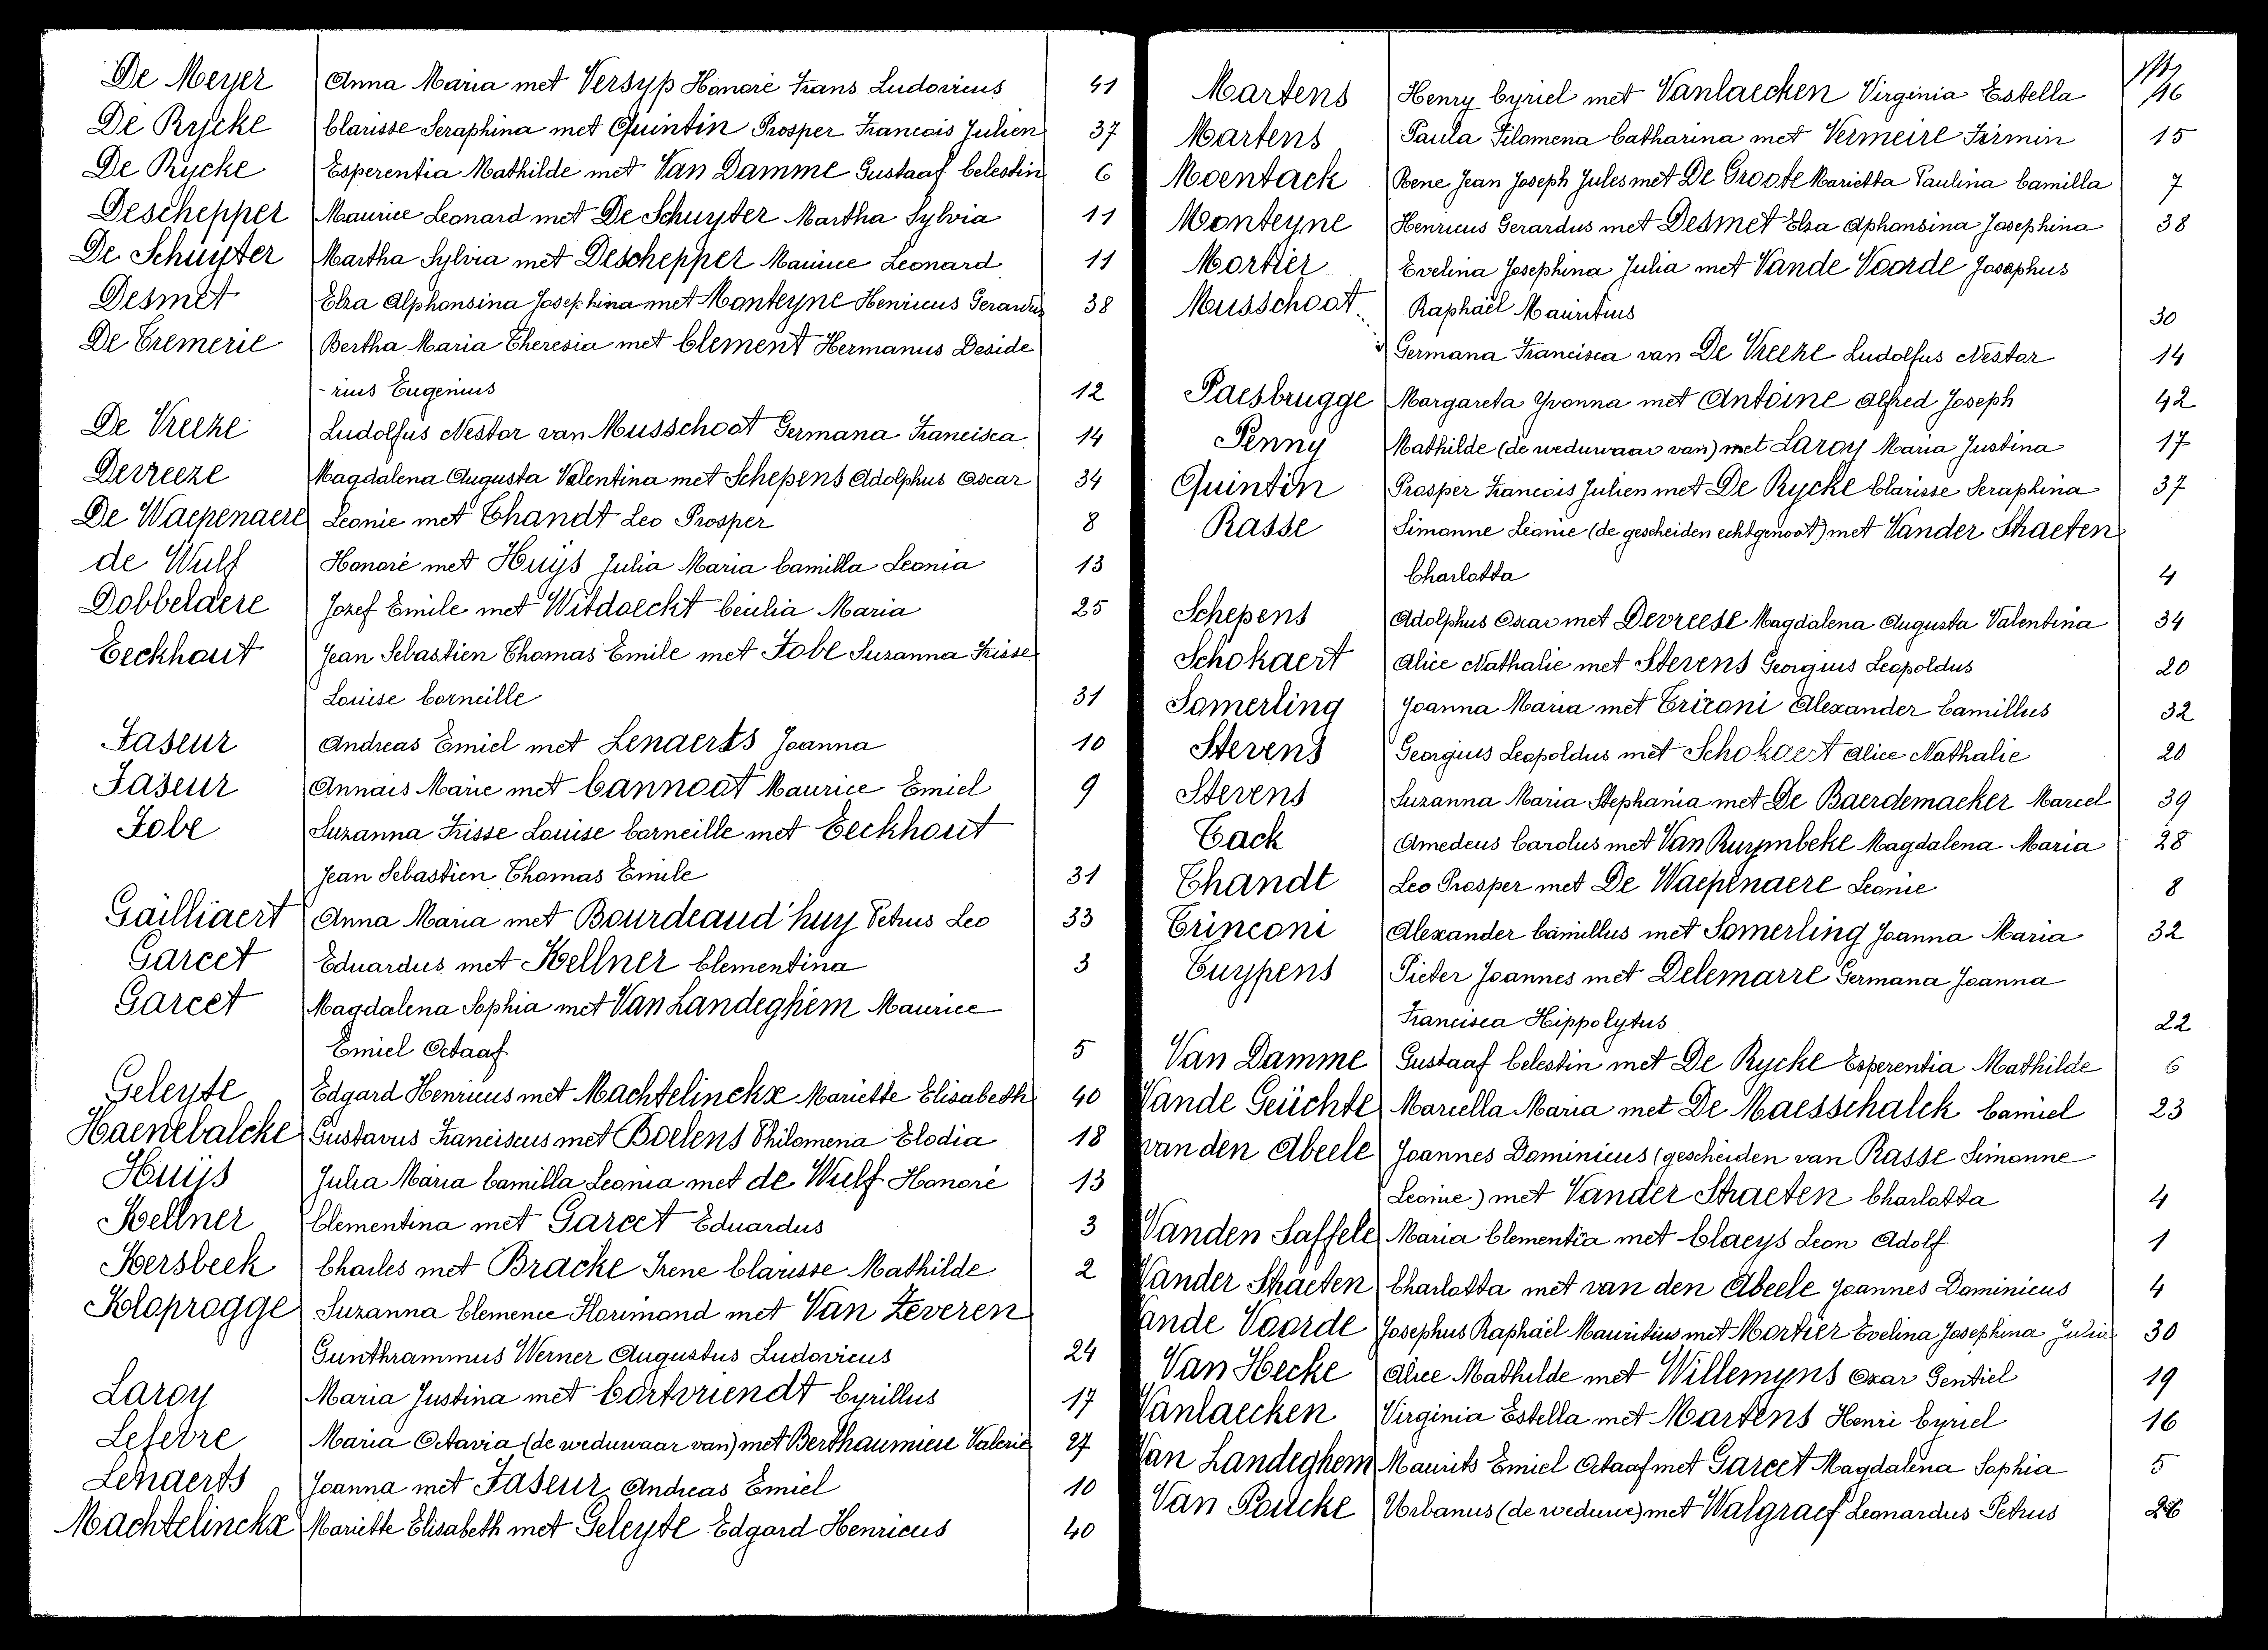 De Meyer Anna Maria met Versyp Honoré Frans Ludovicus 41
De Rycke Clarisse Seraphina met Quintin Prosper Francois Julien 37
De Rycke Esperentia Mathilde met Van Damme Gustaaf Celestin 6
Deschepper Maurice Leonard met De Schuyter Martha Sylvia 11
De Schuyter Martha Sylvia met Deschepper Maurice Leonard 11
Desmet Elza Alphonsina Josephina met Monteyne Henricus Gerardus 38
De Tremerie Bertha Maria Theresia met Clement Hermanus Deside
-rius Eugenius 12
De Vreeze Ludolfus Nestor van Musschoot Germana Francisca 14
Devreeze Magdalena Augusta Valentina met Schepens Adolphus Oscar 34
De Waepenaere Leonie met Thandt Leo Prosper 8
de Wulf Honoré met Huijs Julia Maria Camilla Leonia 13
Dobbelaere Jozef Emile met Witdoeckt Cecilia Maria 25
Eeckhout Jean Sebastien Thomas Emile met Fobe Suzanna Frisse
Louise Corneille 31
Faseur Andreas Emiel met Lenaerts Joanna 10
Faseur Annais Marie met Cannoot Maurice Emiel 9
Fobe Suzanna Frisse Louise Corneille met Eeckhout
Jean Sebastien Thomas Emile 31
Gailliaert Anna Maria met Bourdeaud'huy Petrus Leo 33
Garcet Eduardus met Kellner Clementina 3
Garcet Magdalena Sophia met Van Landeghem Maurice
Emiel Octaaf 5
Geleyte Edgard Henricus met Machtelinckx Mariette Elisabeth 40
Haenebalcke Gustavus Franciscus met Boelens Philomena Elodia 18
Huijs Julia Maria Camilla Leonia met de Wulf Honoré 13
Kellner Clementina met Garcet Eduardus 3
Kersbeek Charles met Bracke Irene Clarisse Mathilde 2
Kloprogge Suzanna Clemence Florimond met Van Zeveren
Gunthrammus Werner Augustus Ludovicus 24
Laroy Maria Justina met Cortvriendt Cyrillus 17
Lefebre Maria Octavia (de weduwaar van) met Berthaumieu Valerie 27
Lenaerts Joanna met Faseur Andreas Emiel 10
Machtelinckx Mariette Elisabeth met Geleyte Edgard Henricus 40
Martens Henry Cyriel met Vanlaecken Virginia Estella 16
Martens Paula Filomena Catharina met Vermeire Firmin 15
Moentack Rene Jean Joseph Jules met De Groote Marietta Paulina Camilla 7
Monteyne Henricus Gerardus met Desmet Elza Alphonsina Josephina 38
Mortier Evelina Josephina Julia met Vande Voorde Josephus
Musschoot Raphaël Mauritius 30
Germana Francisca van De Vreeze Ludolfus Nestor 14
Paesbrugge Margareta Yvonna met Antoine Alfred Joseph 42
Penny Mathilde (de weduwaar van) met Laroy Maria Justina 17
Quintin Prosper Francois Julien met De Rycke Clarisse Seraphina 37
Rasse Simonne Leonie (de gescheiden echtgenoot) met Vander Straeten
Charlotta 4
Schepens Adolphus Oscar met Devreese Magdalena Augusta Valentina 34
Schokaert Alice Nathalie met Stevens Georgius Leopoldus 20
Somerling Joanna Maria met Trizoni Alexander Camillus 32
Stevens Georgius Leopoldus met Schokaert Alice Nathalie 20
Stevens Suzanna Maria Stephania met De Baerdemaeker Marcel 39
Tack Amedeus Carolus met Van Ruymbeke Magdalena Maria 28
Thandt Leo Prosper met De Waepenaere Leonie 8
Trinconi Alexander Camillus met Somerling Joanna Maria 32
Tuypens Pieter Joannes met Delemarre Germana Joanna
Francisca Hippolytus 22
Van Damme Gustaaf Celestin met De Rycke Esperentia Mathilde 6
Vande Geuchte Mariella Maria met De Maesschalck Camiel 23
van den Abeele Joannes Dominicus (gescheiden van Rasse Simonne
Leonie) met Vander Straeten Charlotta 4
Vanden Saffele Maria Clementia met Claeys Leon Adolf 1
Vander Straeten Charlotta met van den Abeele Joannes Dominicus 4
Vande Voorde Josephus Raphaël Mauritius met Mortier Evelina Josephina Julia 30
Van Hecke Alice Mathilde met Willemyns Oscar Gentiel 19
Vanlaecken Virginia Estella met Martens Henri Cyriel 16
Van Landeghem Maurits Emiel Octaaf met Garcet Magdalena Sophia 5
Van Poucke Urbanus (de weduwe) met Walgraef Leonardus Petrus